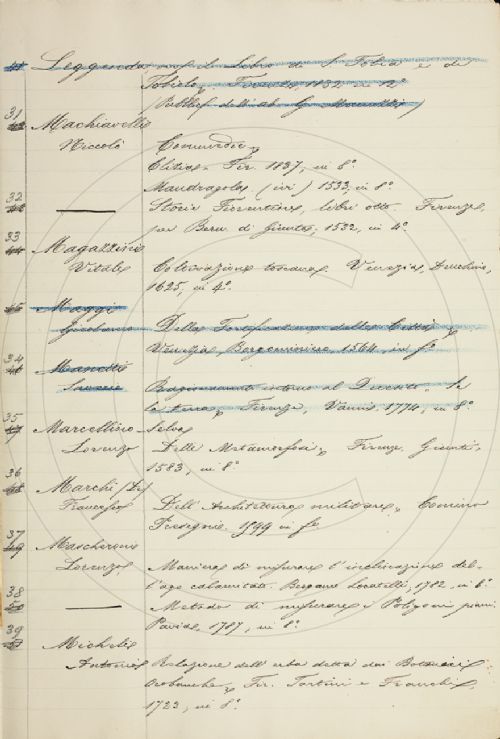 41 Leggenda, del Libro di S. Tobia e di
Tobiolo. Firenze, 1832, in 12°
31
42 Machiavelli
Niccolò Commedie,
Clitia. Fir. 1537, in 8°
Mandragola (ivi) 1533, in 8°
32
43 —— Storie Fiorentine, libri otto. Firenze,
per Bern. di Giunta, 1532, in 4°
33
44 Magazzini
Vitale Coltivazione toscana. Venezia, Deuchino,
1625, in 4°
45 Maggi
Girolamo Della Fortificazione delle Città,
Venezia, Borgominiero, 1564, in f°
34
46 Manetti
Saverio Ragionamento intorno al
la terra, Firenze, Vanni. 1774, in 8°
35
47 Marcellino Selva
Lorenzo Delle Metamorfosi, Firenze, Giunti,
1583, in 8°
36
48 Marchi (De)
Francesco Dell'Architettura militare,
1599 in f°
37
49 Mascheroni
Lorenzo Maniera di misurare l'inclinazione del-
l'ago calamitato. Bergamo Locatelli, 1782, in 8°
38
50 —— Metodo di misurare i Poligoni piani
Pavia, 1787, in 8°
39
51 Micheli
Antonio Relazione dell'erba detta dai Botanici
Orobanche, Fir. Tartini e Franchi,
1723, in 8°